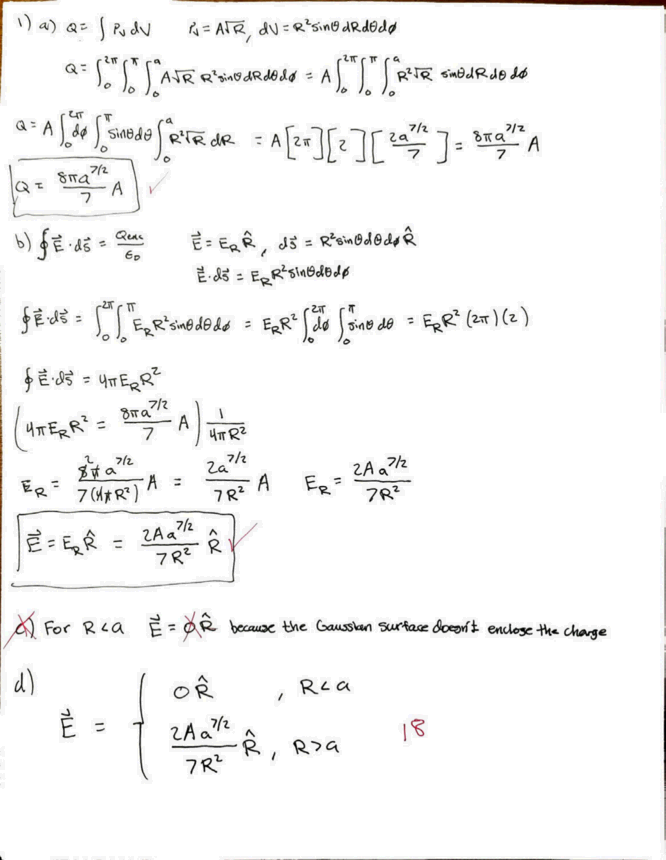 1) a) Q = ∫ ρᵥ dV    ρᵥ = A√R, dV = R² sinθ dR dθ dϕ
Q = ∫₀^2π ∫₀^π ∫₀^a A√R R² sinθ dR dθ dϕ = A ∫₀^2π ∫₀^π ∫₀^a R²√R sinθ dR dθ dϕ
Q = A ∫₀^2π dϕ ∫₀^π sinθ dθ ∫₀^a R²√R dR = A [2π] [2] [2a^7/2 / 7] = 8πa^7/2 / 7 A
Q = 8πa^7/2 / 7 A ✓
b) ∮ E⃗ · ds⃗ = Qenc / ε₀    E⃗ = E_R R̂, ds⃗ = R² sinθ dθ dϕ R̂
E⃗ · ds⃗ = E_R R² sinθ dθ dϕ
∮ E⃗ · ds⃗ = ∫₀^2π ∫₀^π E_R R² sinθ dθ dϕ = E_R R² ∫₀^2π dϕ ∫₀^π sinθ dθ = E_R R² (2π)(2)
∮ E⃗ · ds⃗ = 4π E_R R²
(4π E_R R² = 8πa^7/2 / 7 A) 1 / 4πR²
E_R = 8π a^7/2 / 7(4πR²) A = 2a^7/2 / 7R² A    E_R = 2Aa^7/2 / 7R²
E⃗ = E_R R̂ = 2Aa^7/2 / 7R² R̂ ✓
c) For R < a  E⃗ = 0 R̂ because the Gaussian surface doesn't enclose the charge
d)
E⃗ = { 0 R̂ , R < a
2Aa^7/2 / 7R² R̂ , R > a
18